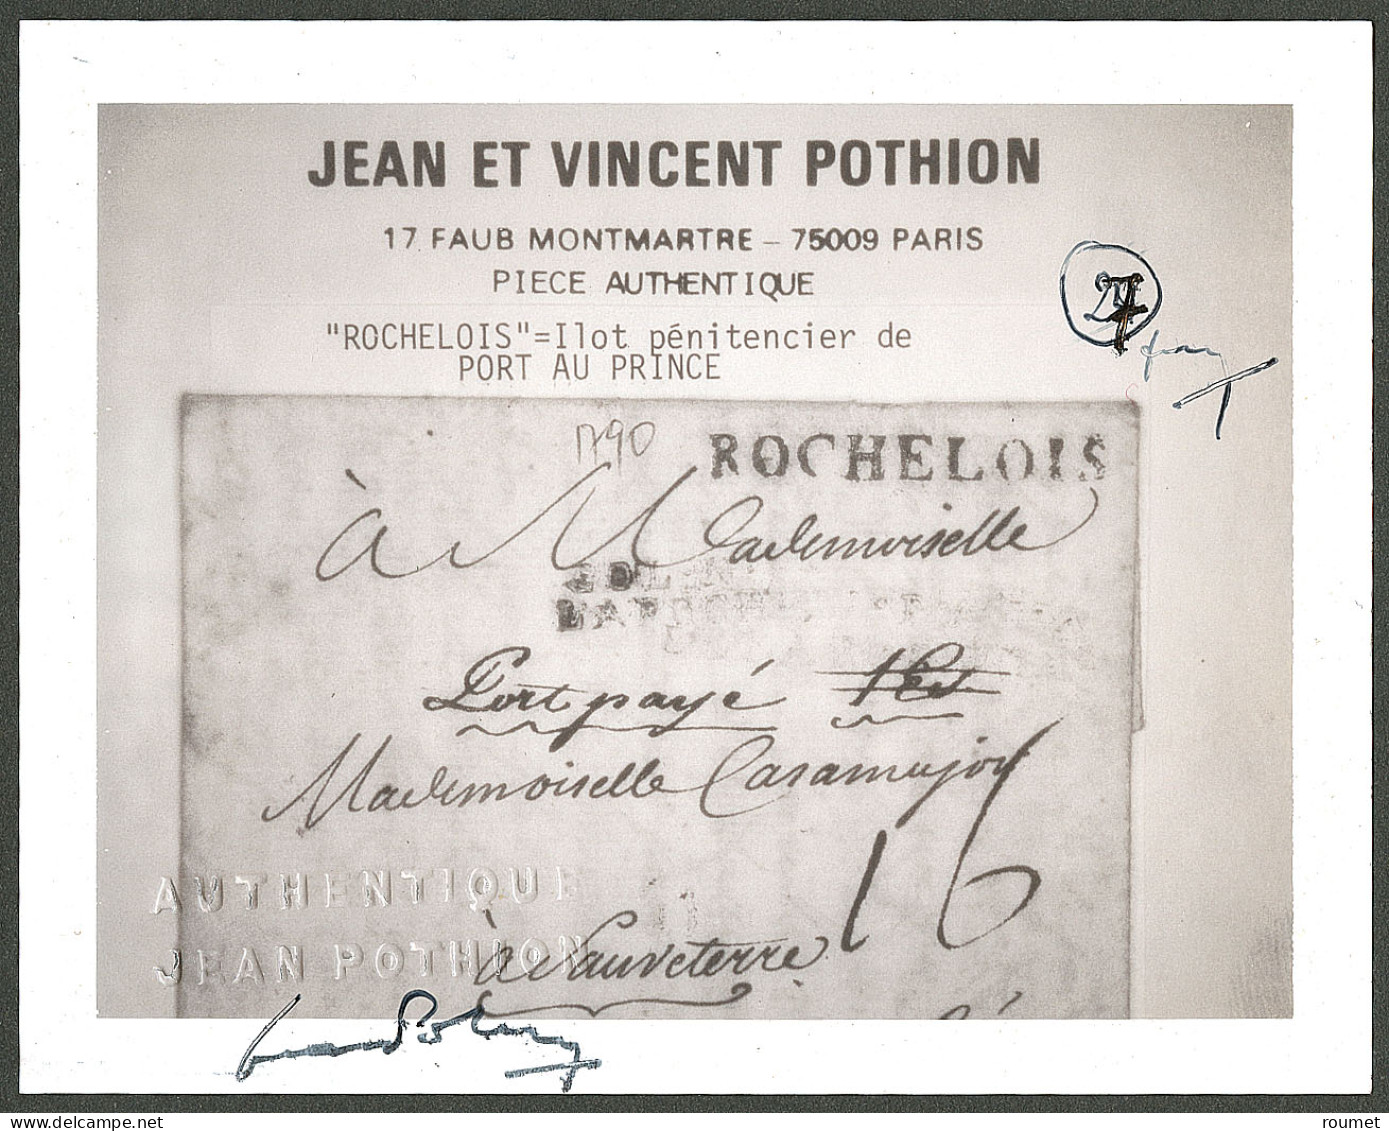 JEAN ET VINCENT POTHION
17 FAUB MONTMARTRE - 75009 PARIS
PIECE AUTHENTIQUE
"ROCHELOIS"=Ilot pénitencier de
PORT AU PRINCE
1790 ROCHELOIS
à Mademoiselle
Port payé
Mademoiselle Casamajor
16
AUTHENTIQUE
JEAN POTHION
à Sauveterre
delcampe.net
roumet